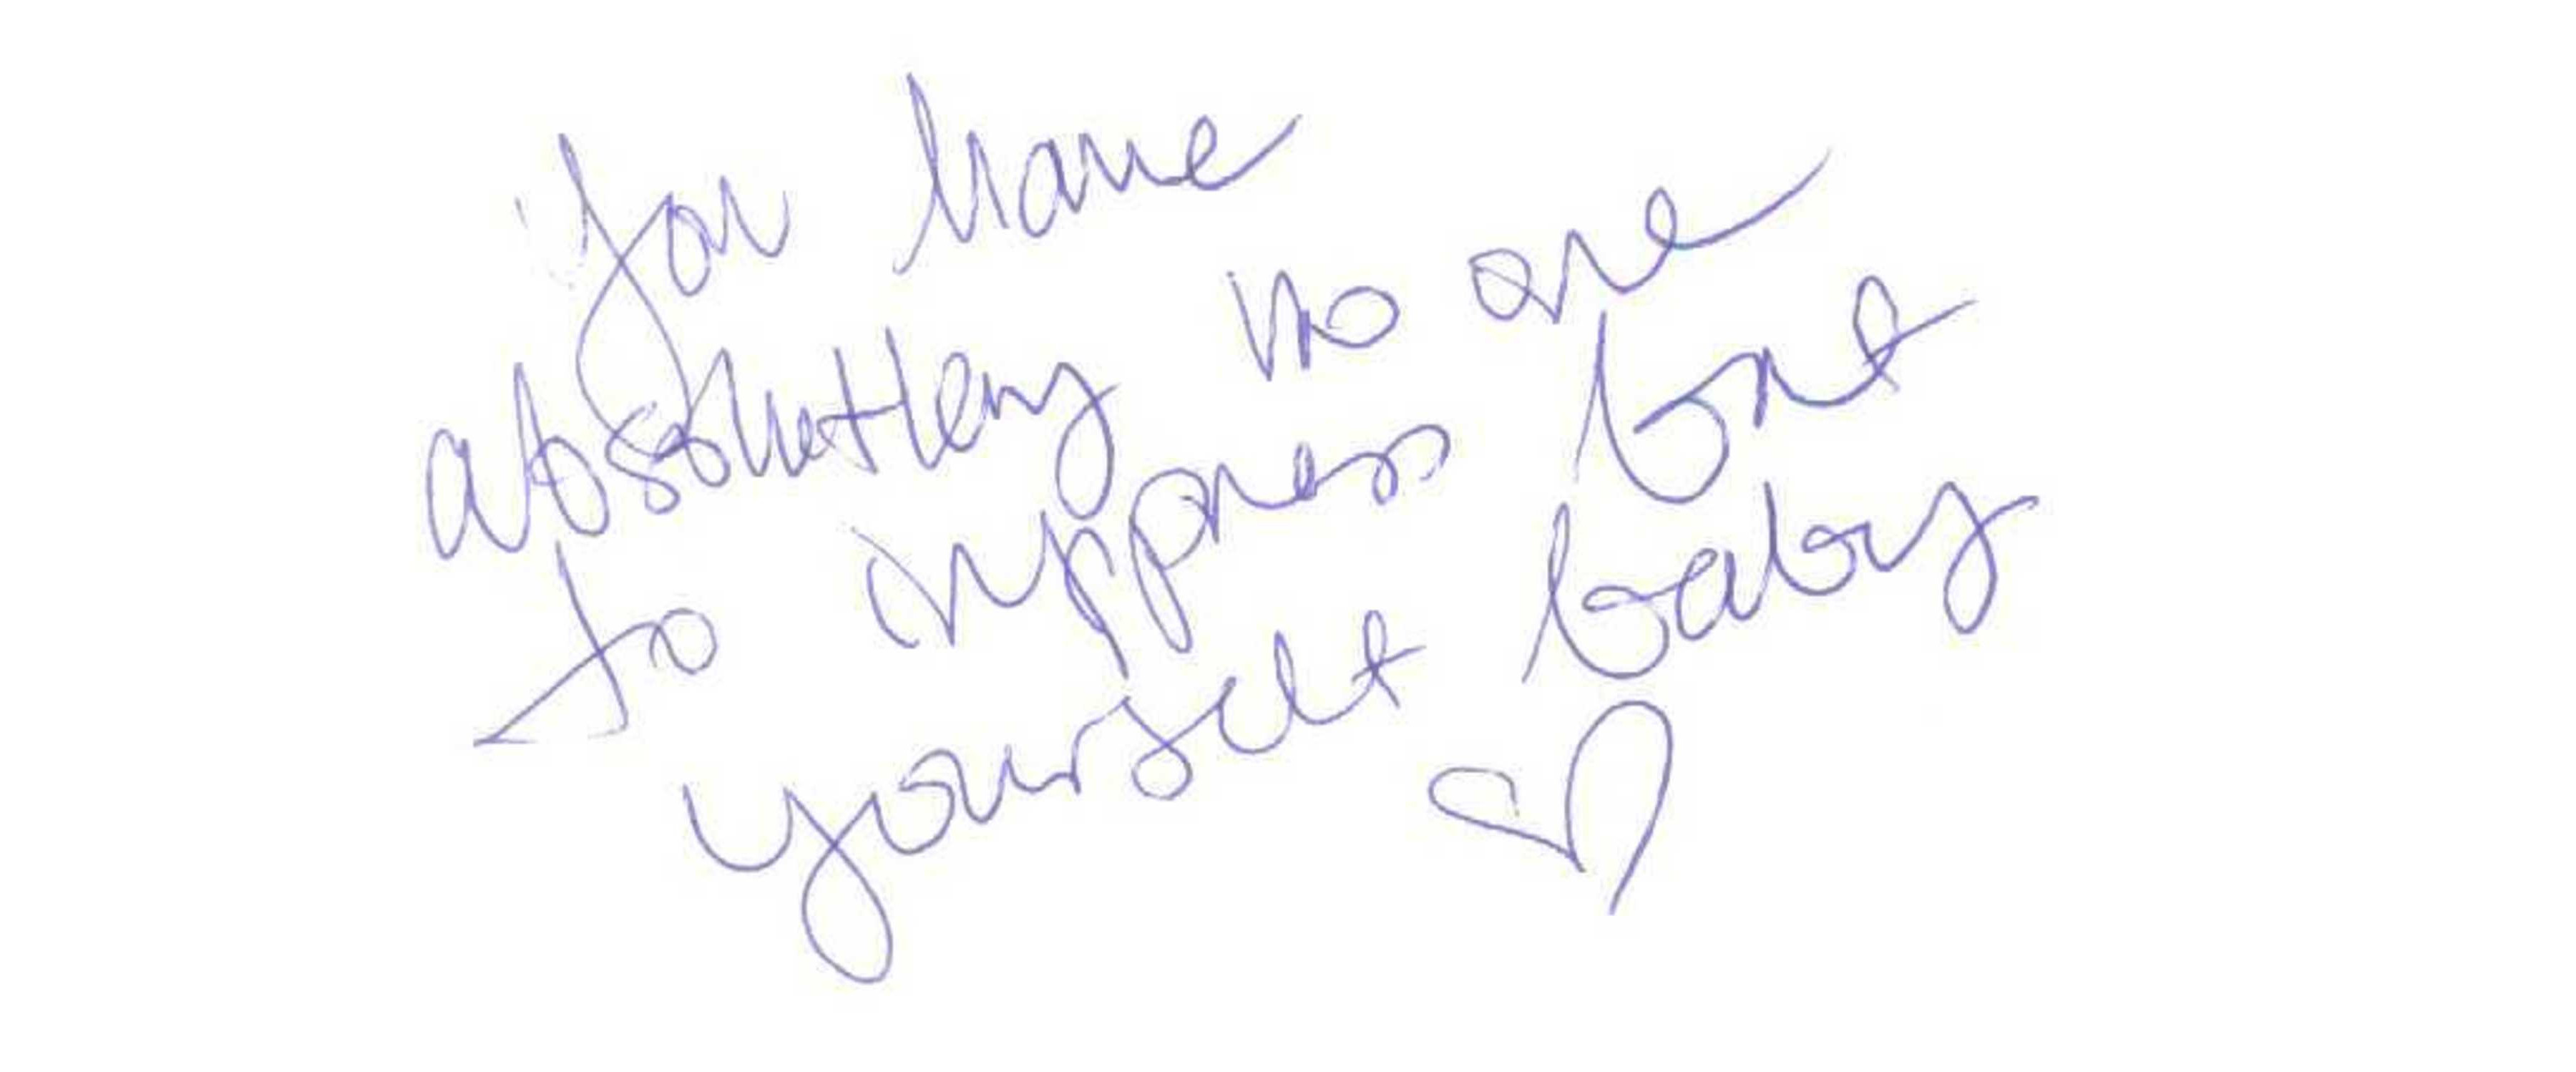 You have
absolutley no one
to suppress but
yourself baby
♡